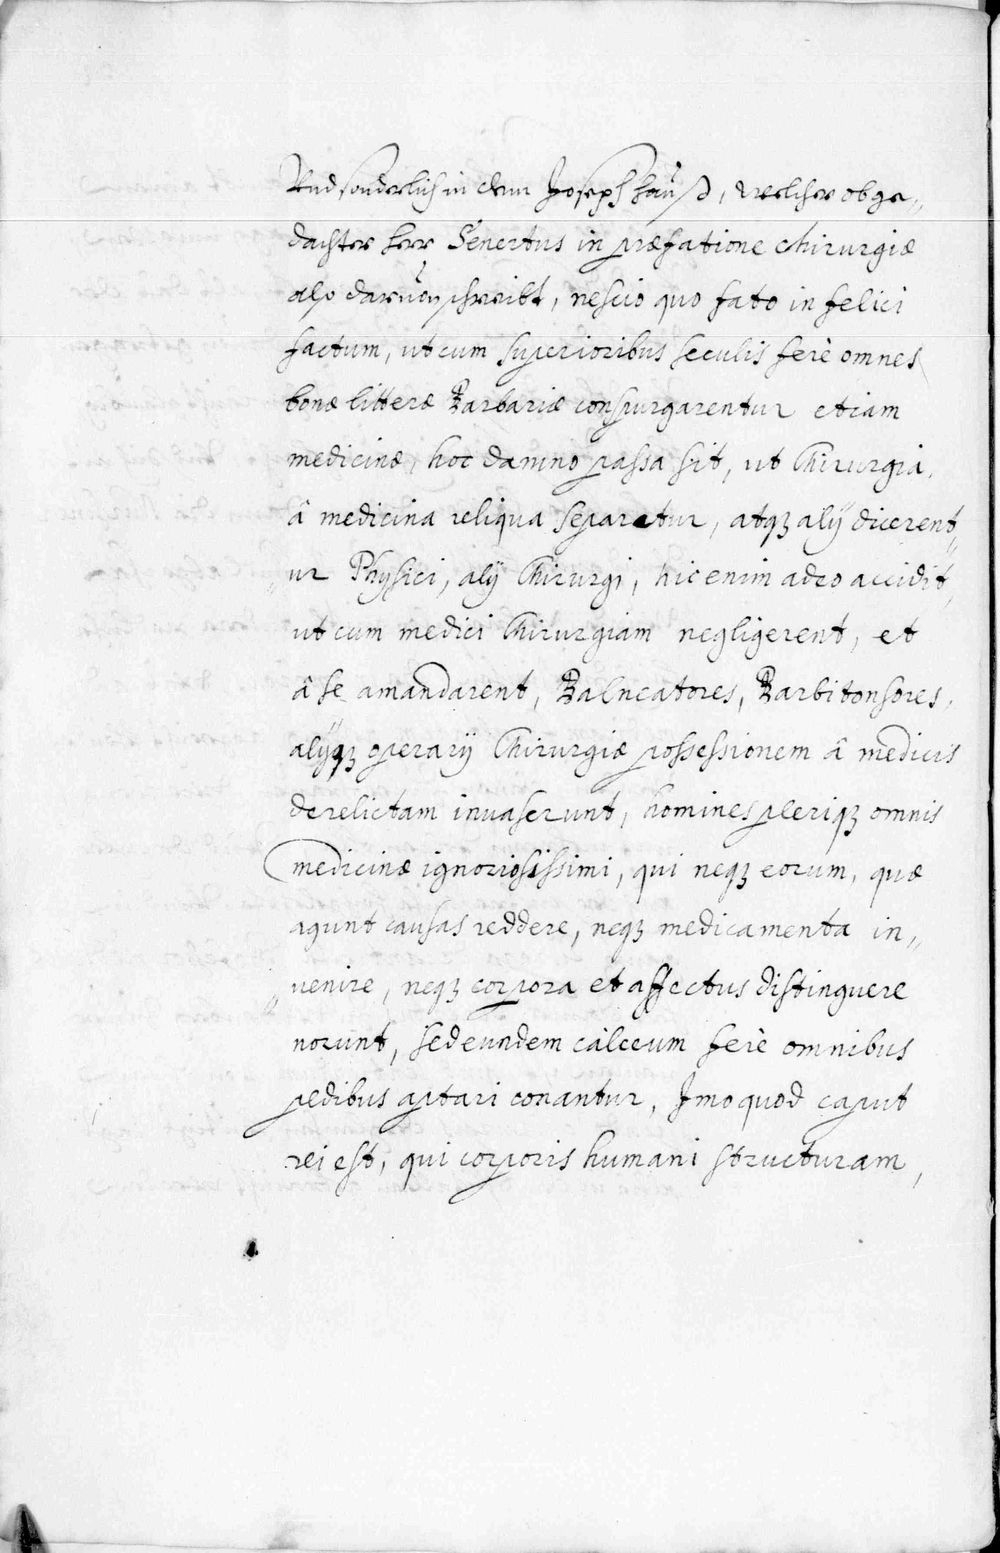 Vnd sonderlich in dem Joseph hauß, welcher obge„
dachter herr Senertus in præfatione chirurgiæ
also daruon schreibt, nescio quo fato in felici
factum, ut cum superioribus seculis ferè omnes
bonæ litteræ Barbariæ conspurgarentur etiam
medicinæ, hoc damno passa sit, ut Chirurgia,
â medicina reliqua separetur, atqꝫ alÿ dicerent„
„ur Physici, alÿ Chirurgi, hic enim adeo accidit,
ut cum medici Chirurgiam negligerent, et
â se amandarent, Balneatores, Barbitonsores,
alÿqꝫ operarÿ Chirurgiæ possessionem â medicis
derelictam invaserunt, homines pleriqꝫ omnis
medicinæ ignoriosissimi, qui neqꝫ eorum, quæ
agunt causas reddere, neqꝫ medicamenta in„
„venire, neqꝫ corpora et affectus distinguere
norunt, sed eundem calceum ferè omnibus
pedibus aptari conantur, Imo quod caput
rei est, qui corporis humani structuram,